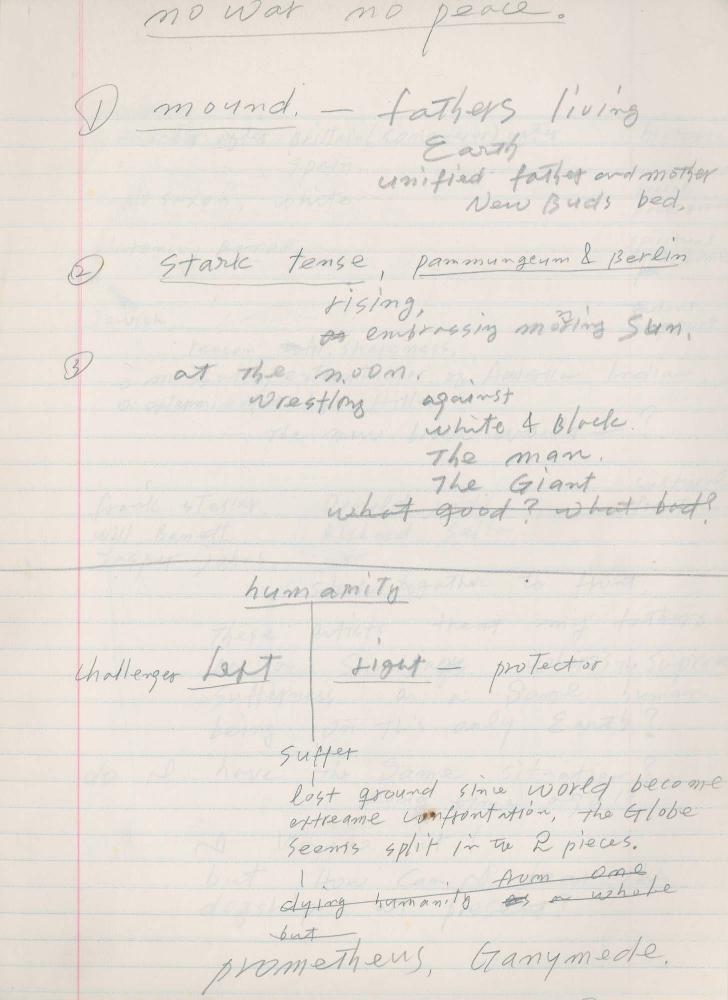 no war no peace.
1) mound. — fathers living
Earth
unified father and mother
New Buds bed,
2 Stark tense, pammungeum & Berlin
rising,
embrassing moving Sun,
3 at the noon.
Wrestlong against
white & Black.
The man.
The Giant
what good? What bad?
humanity
challenger Left right — protector
suffer
lost ground since world become
extreame confrontation, the Globe
seems split in to 2 pieces.
from one
dying humanity as a whole
but
prometheus, Ganymede.